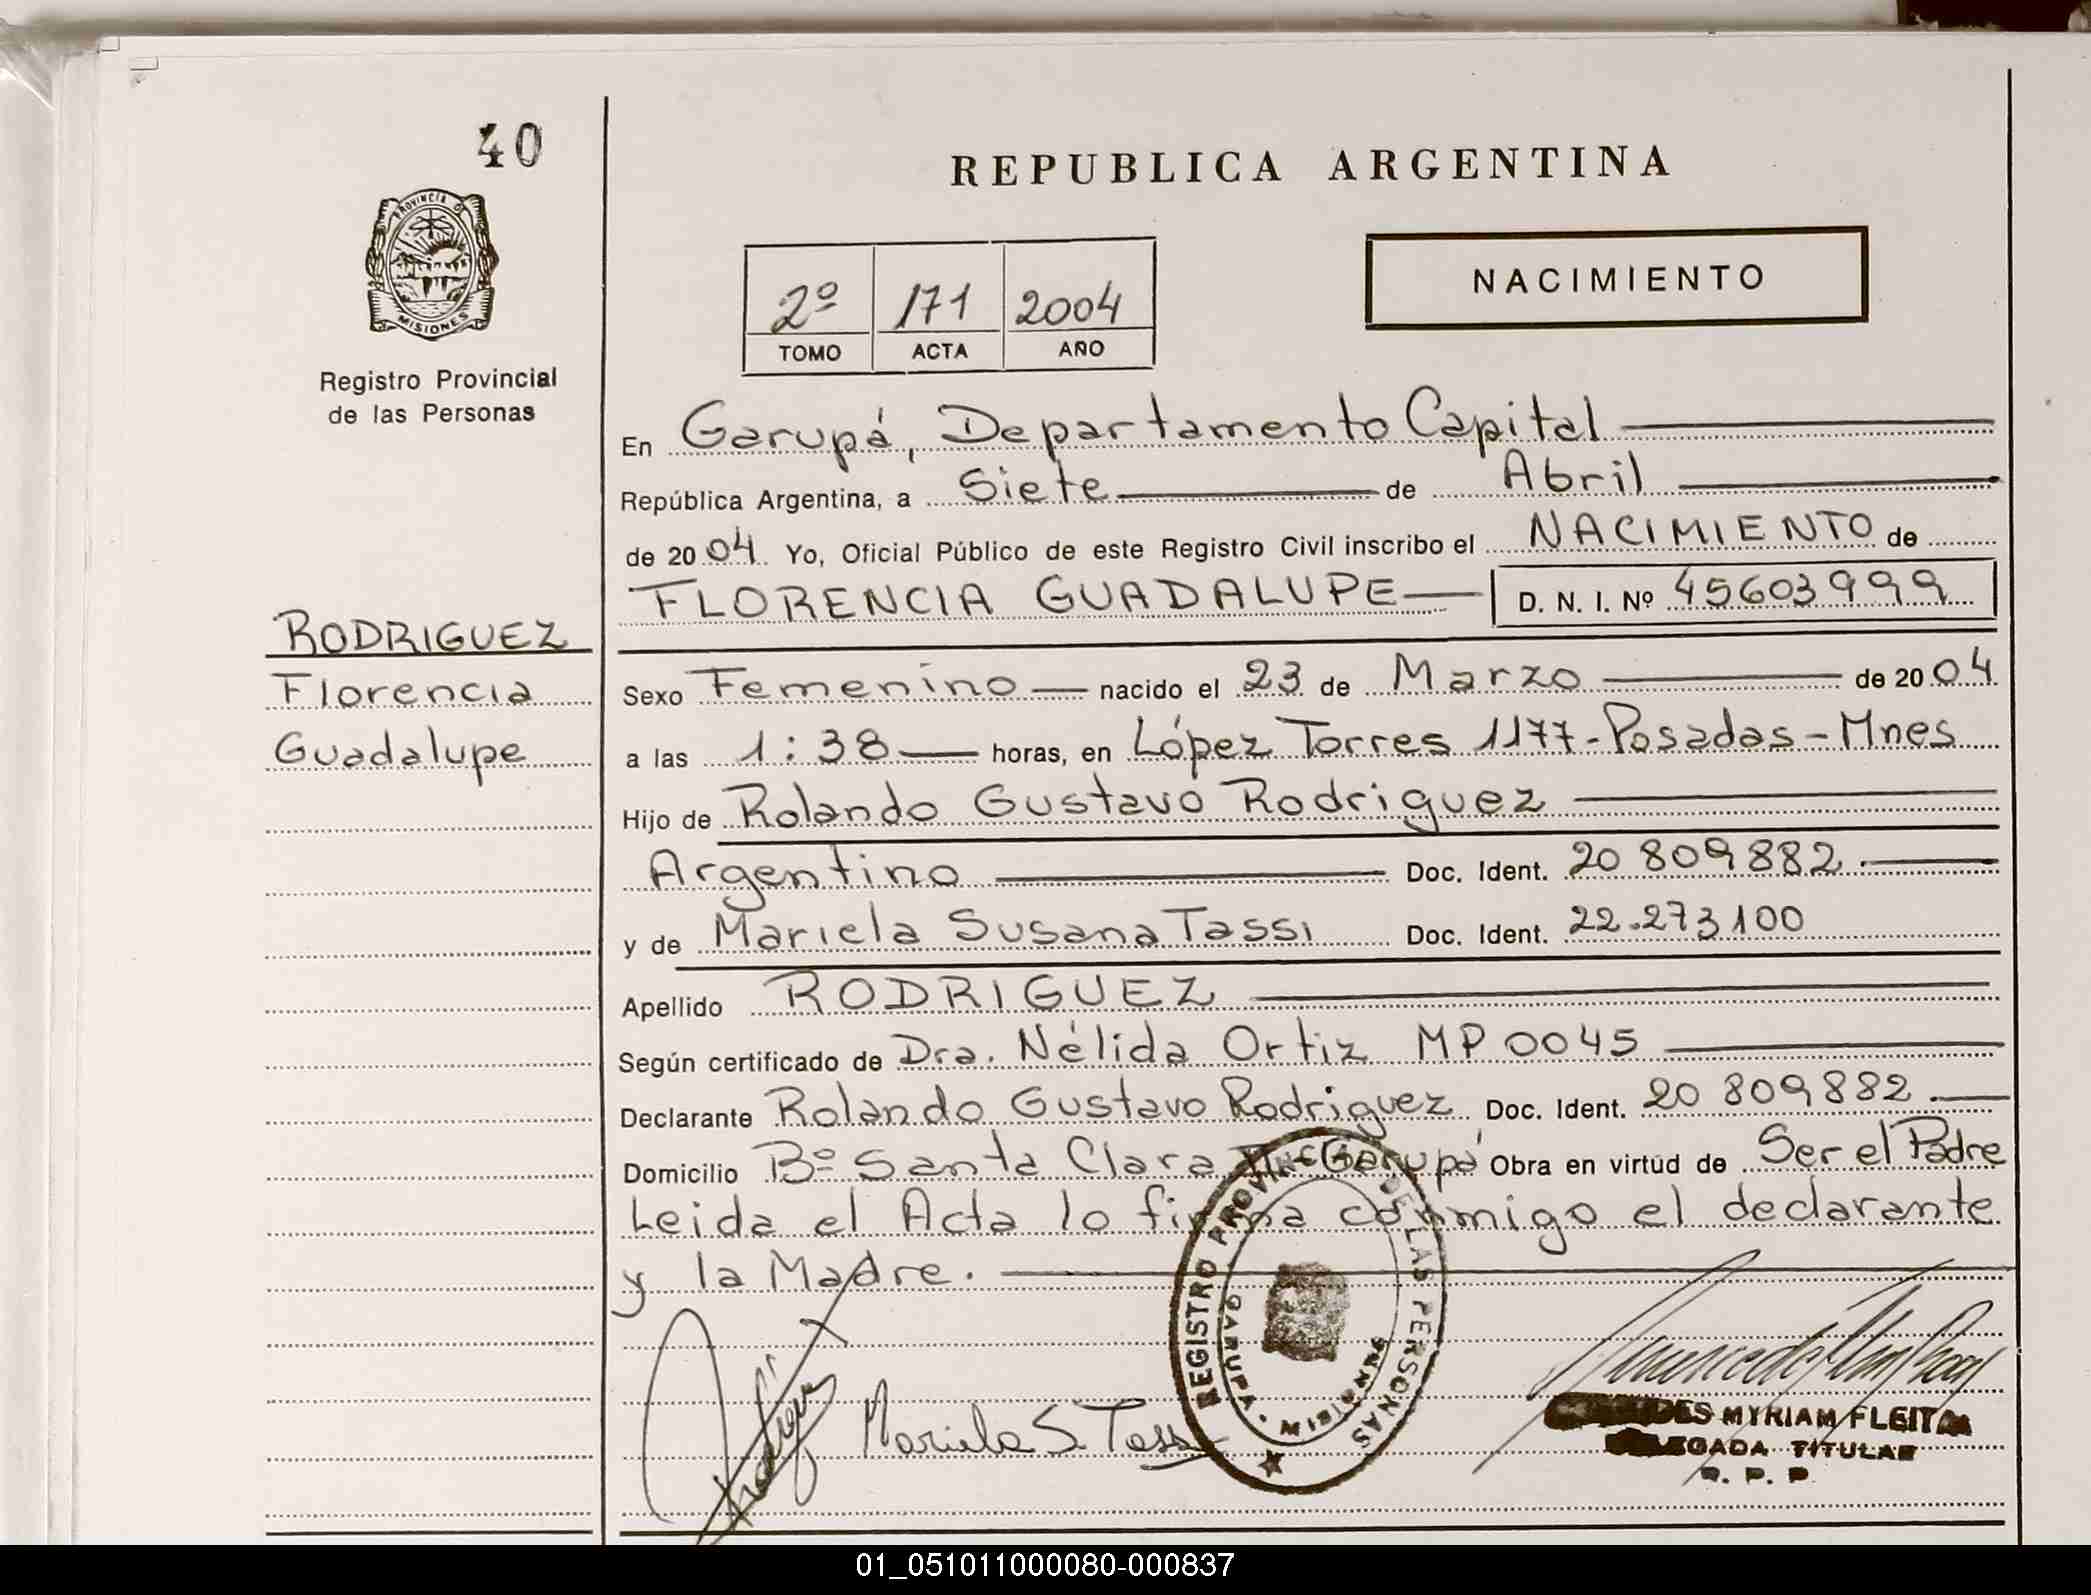 40
PROVINCIA DE
MISIONES
Registro Provincial
de las Personas
REPUBLICA ARGENTINA
NACIMIENTO
2º 171 2004
TOMO ACTA AÑO
En Garupá, Departamento Capital
República Argentina, a Siete de Abril
de 2004. Yo, Oficial Público de este Registro Civil inscribo el NACIMIENTO de
FLORENCIA GUADALUPE D. N. I. Nº 45603999
RODRIGUEZ
Florencia
Guadalupe
Sexo Femenino nacido el 23 de Marzo de 2004
a las 1:38 horas, en López Torres 1177-Posadas-Mnes
Hijo de Rolando Gustavo Rodriguez
Argentino Doc. Ident. 20 809882
y de Mariela Susana Tassi Doc. Ident. 22.273100
Apellido RODRIGUEZ
Según certificado de Dra. Nélida Ortiz MP 0045
Declarante Rolando Gustavo Rodriguez Doc. Ident. 20 809882
Domicilio Bº Santa Clara Garupá Obra en virtud de Ser el Padre
Leida el Acta lo firma conmigo el declarante
y la Madre.
REGISTRO PROVINCIAL DE LAS PERSONAS
GARUPA - MISIONES
Rodriguez
Mariela S. Tassi
MYRIAM FLEITA
DELEGADA TITULAR
R. P. P.
01_051011000080-000837